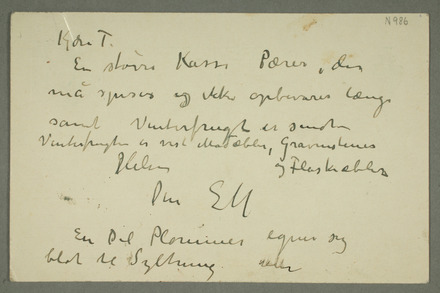 N 986
Kjære T.
En større Kasse Pærer, der
må spises og ikke opbevares længe
samt Vinterfrugt er sendt
Vinterfrugten er vist Madæbler, Gravenstener
Hilsen og Flaskeæbler
Din EM
En Del Plommer egner sig
blot til Syltning